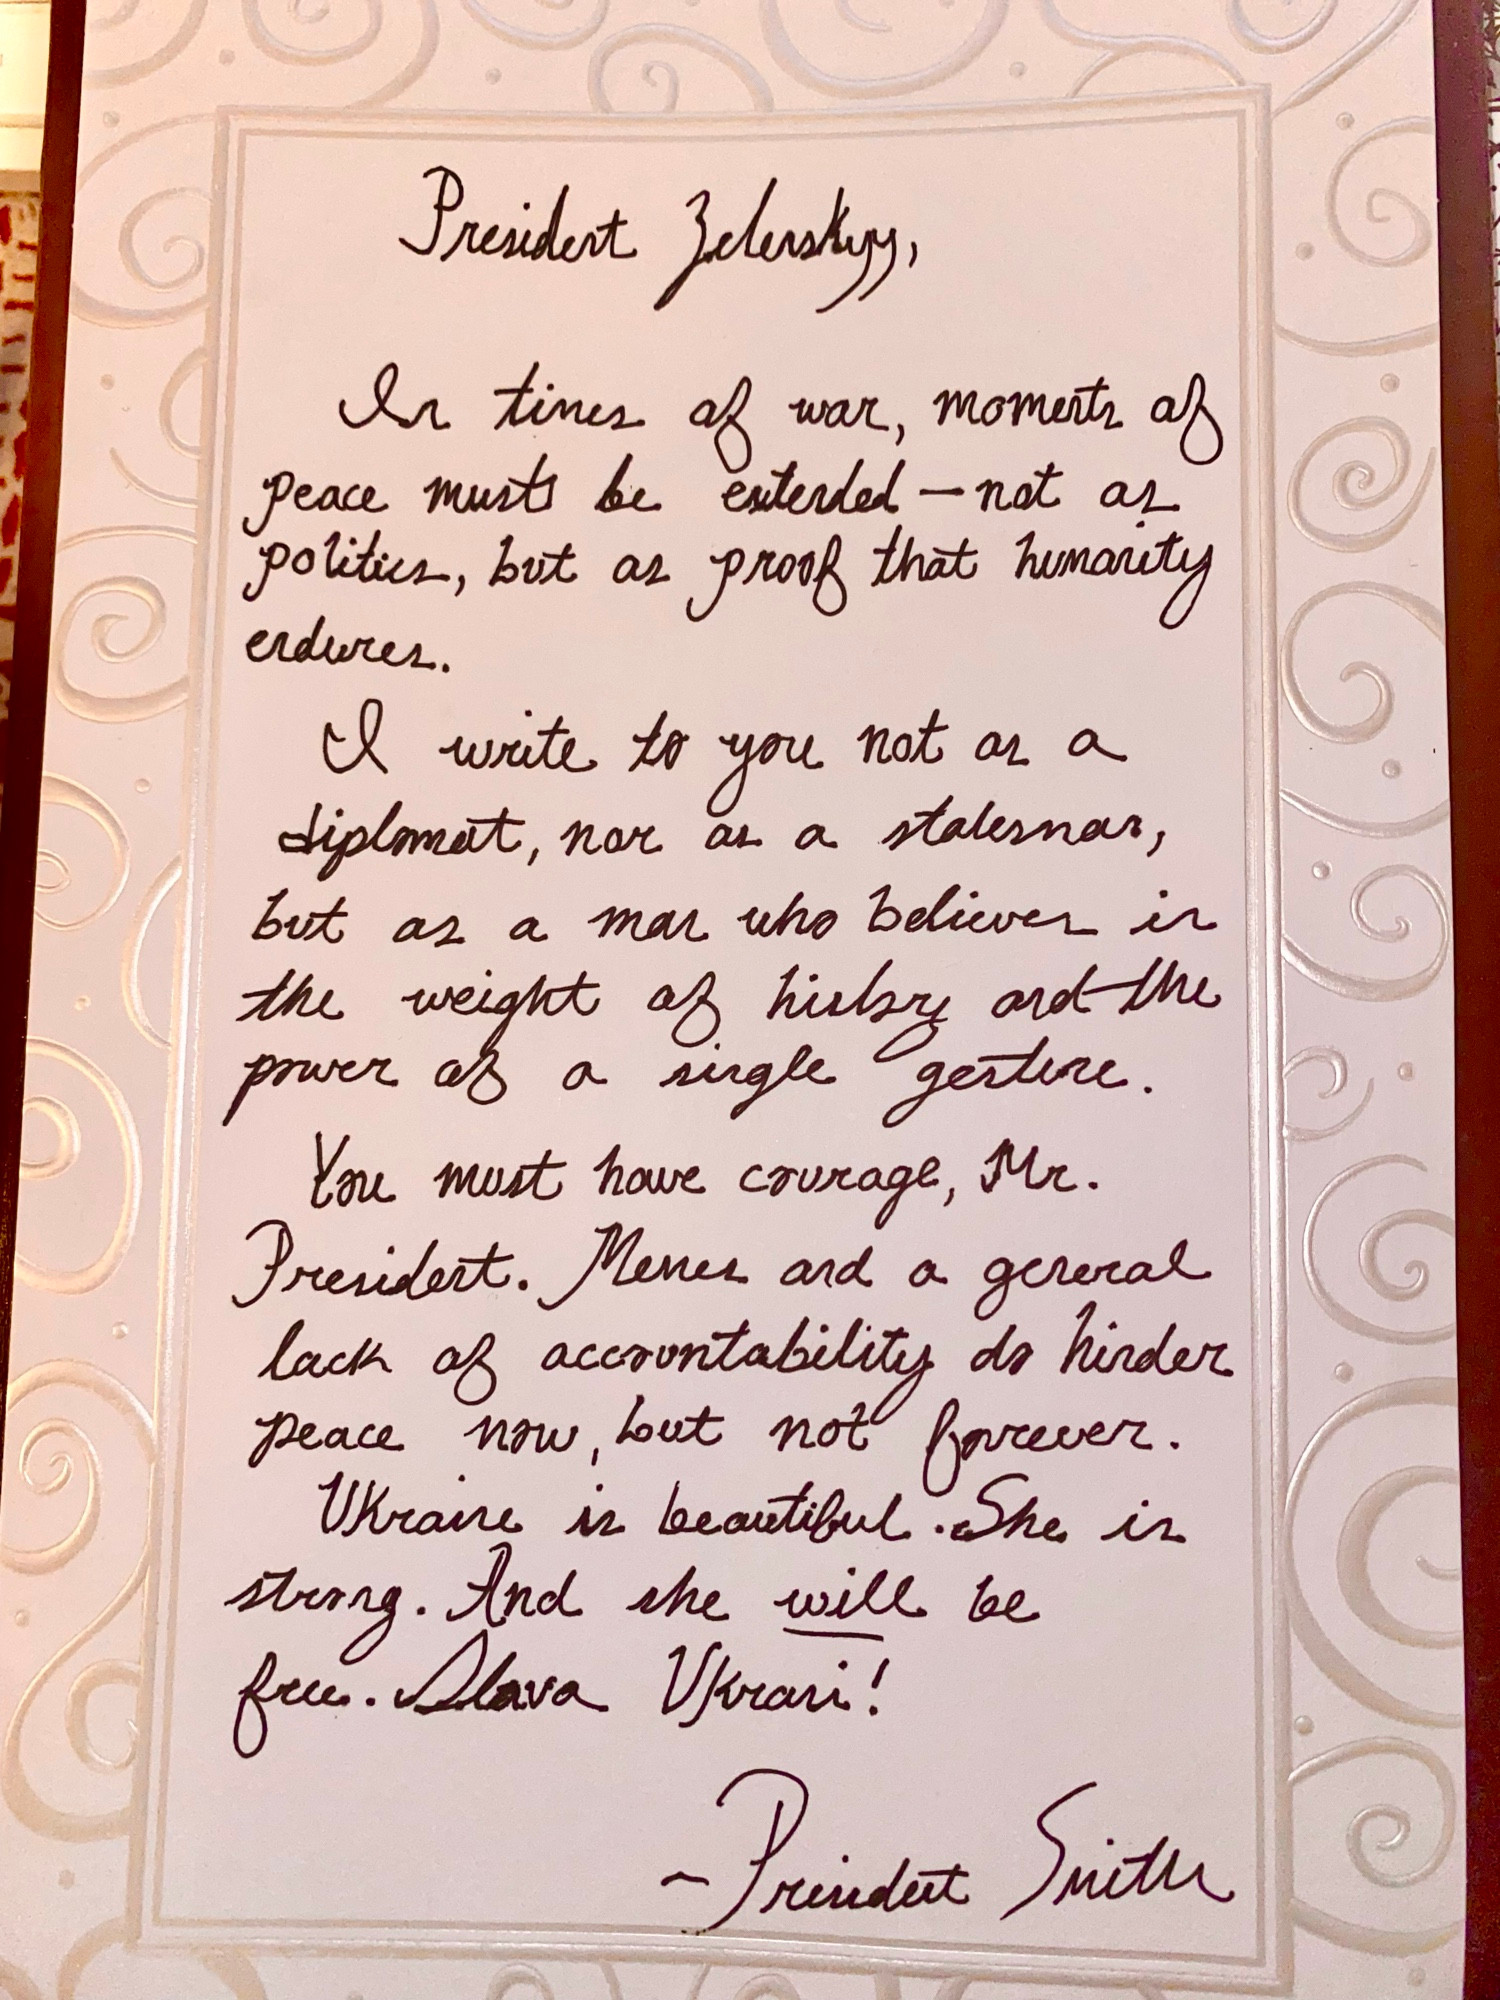 President Zelenskyy,
In times of war, moments of
peace must be extended — not as
politics, but as proof that humanity
endures.
I write to you not as a
diplomat, nor as a statesman,
but as a man who believes in
the weight of history and the
power of a single gesture.
You must have courage, Mr.
President. Memes and a general
lack of accountability do hinder
peace now, but not forever.
Ukraine is beautiful. She is
strong. And she will be
free. Slava Ukraini!
~ President Smith